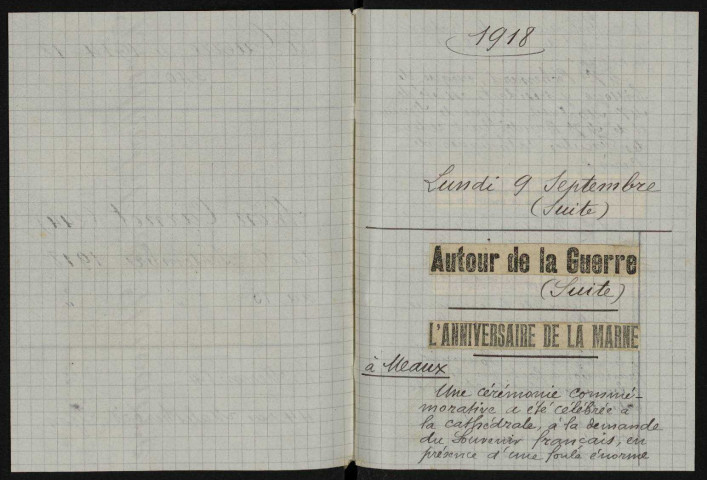 1918
Lundi 9 Septembre
(Suite)
Autour de la Guerre
(Suite)
L'ANNIVERSAIRE DE LA MARNE
à Meaux
Une cérémonie commé-
morative a été célébrée à
la cathédrale, à la demande
du Souvenir français, en
présence d'une foule énorme